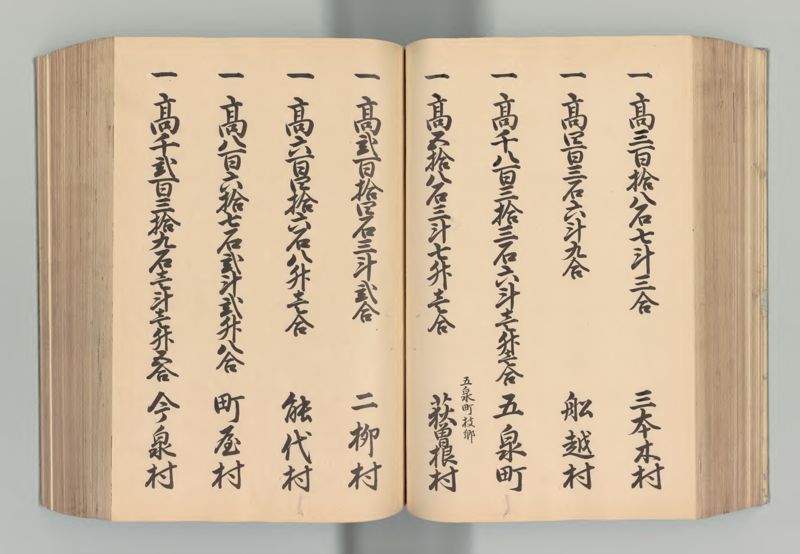 一 高三百拾八石七斗三合 三本木村
一 高四百三石六斗九合 舩越村
一 高千八百三拾三石六斗壱升壱合 五泉町
五泉町枝郷
一 高五拾八石三斗七升壱合 萩曽根村
一 高弐百拾四石三斗弐合 二柳村
一 高六百四拾六石八升壱合 能代村
一 高八百六拾七石弐斗弐升八合 町屋村
一 高千弐百三拾九石壱斗壱升五合 今泉村